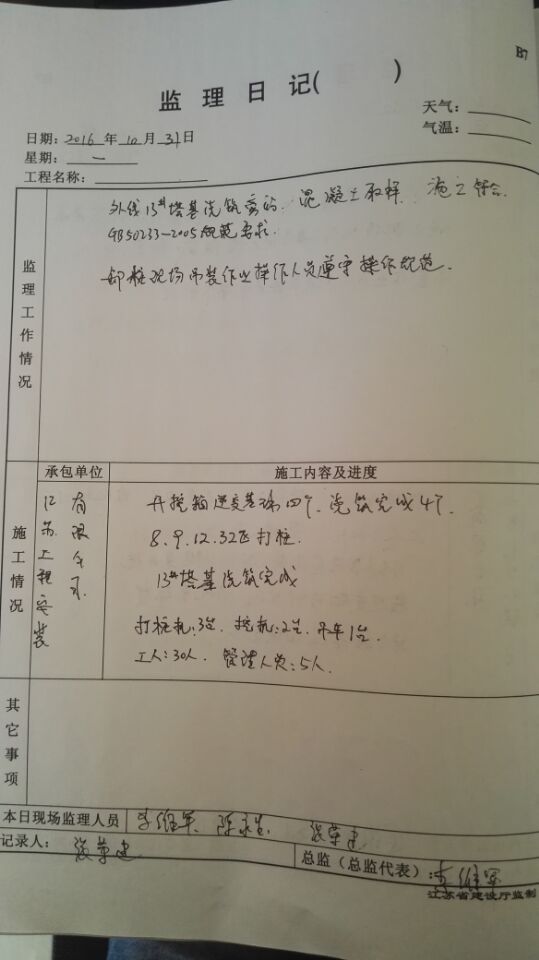 B7
监理日记( )
天气:
日期: 2016 年 10 月 31 日
气温:
星期: 一
工程名称:
监理工作情况
外线13#塔基浇筑旁站. 混凝土取样. 施工符合
GB50233-2005规范要求.
卸桩现场吊装作业操作人员遵守操作规范.
施工情况
承包单位
施工内容及进度
工程安装
有限公司
开挖箱逆变基础四个. 浇筑完成4个.
8.9.12.32区打桩.
13#塔基浇筑完成
打桩机:3台. 挖机:2台. 吊车1台.
工人:30人. 管理人员:5人.
其它事项
本日现场监理人员
李维军
张荣建
记录人: 张荣建
总监（总监代表）: 李维军
江苏省建设厅监制